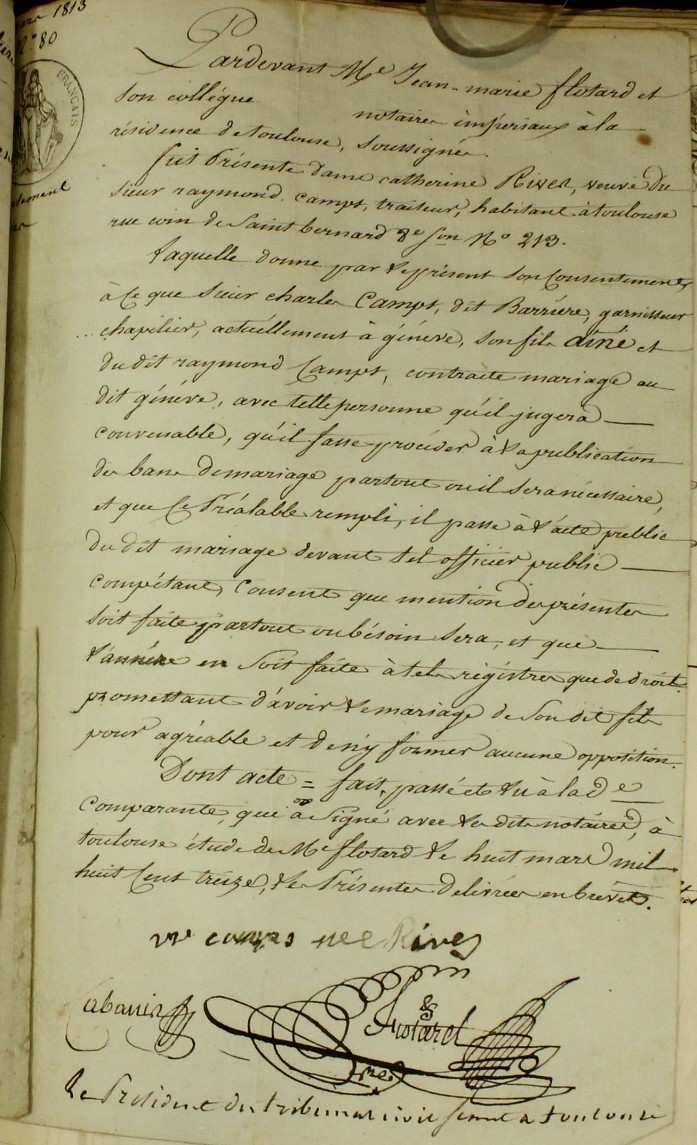 1813
80
FRANÇAIS
Pardevant Me Jean-marie flotard et
son collégue notaires impériaux à la
résidence de toulouse, soussignés
fut Présente dame catherine Rives, veuve du
sieur raymond camps, traiteur, habitant à toulouse
rue coin de Saint bernard 8e Son No 213.
Laquelle donne par le présent son Consentement
à Ce que Sieur charles Camps, dit Barriére, garnisseur
chapélier, actuéllement à généve, son fils aîné et
du dit raymond Camps, contracte mariage au
dit généve, avec telle personne qu'il jugera
convenable, qu'il fasse procéder à la publication
des bans de mariage partout ou il sera nécessaire,
et que Ce Préalable rempli, il passe à l'acte public
du dit mariage devant tel officier public
compétant, Consent que mention des présentes
soit faite partout ou bésoin sera, et que
l'annéxe en soit faite à tels régistres que de droit.
promettant d'avoir le mariage de Son dit fils
pour agréable et de n'y former aucune opposition.
Dont acte = fait, passé et lu à la de
comparante qui a Signé avec les dits notaires, à
toulouse étude de Me flotard le huit mars mil
huit Cent treize, les Présentes délivrées en brevet.
vve camps née Rives
Cabanis
flotard
Le Président du tribunal civil séant à toulouse